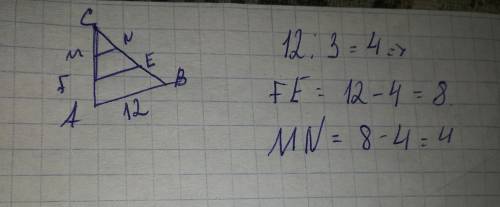 C
M N
F E B
A 12
12 : 3 = 4 =>
FE = 12 - 4 = 8
MN = 8 - 4 = 4